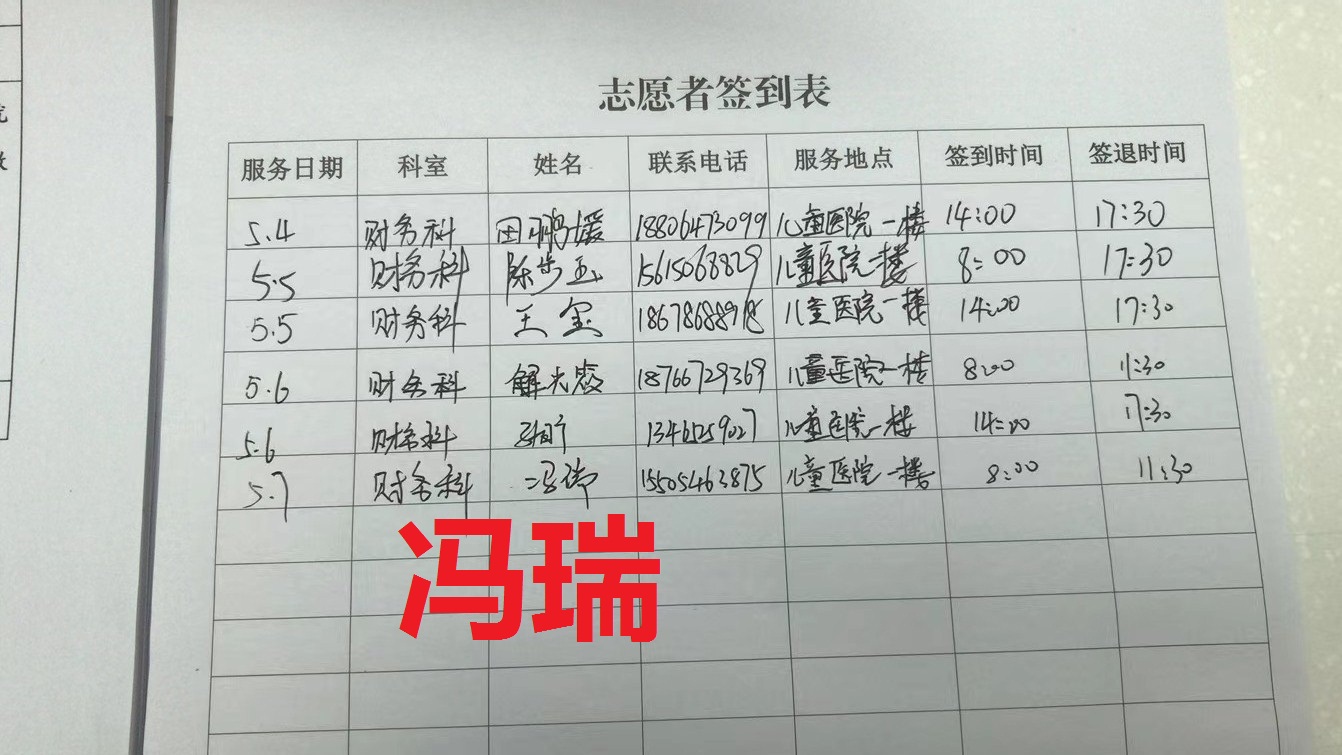 志愿者签到表
服务日期 科室 姓名 联系电话 服务地点 签到时间 签退时间
5.4 财务科 田鹏媛 18806473099 儿童医院一楼 14:00 17:30
5.5 财务科 陈步玉 15615068829 儿童医院一楼 8:00 17:30
5.5 财务科 王玺 儿童医院一楼 14:00 17:30
5.6 财务科 解光爱 18766729369 儿童医院一楼 8:00 11:30
5.6 财务科 儿童医院一楼 14:00 17:30
5.7 财务科 冯瑞 15505463875 儿童医院一楼 8:00 11:30
冯瑞